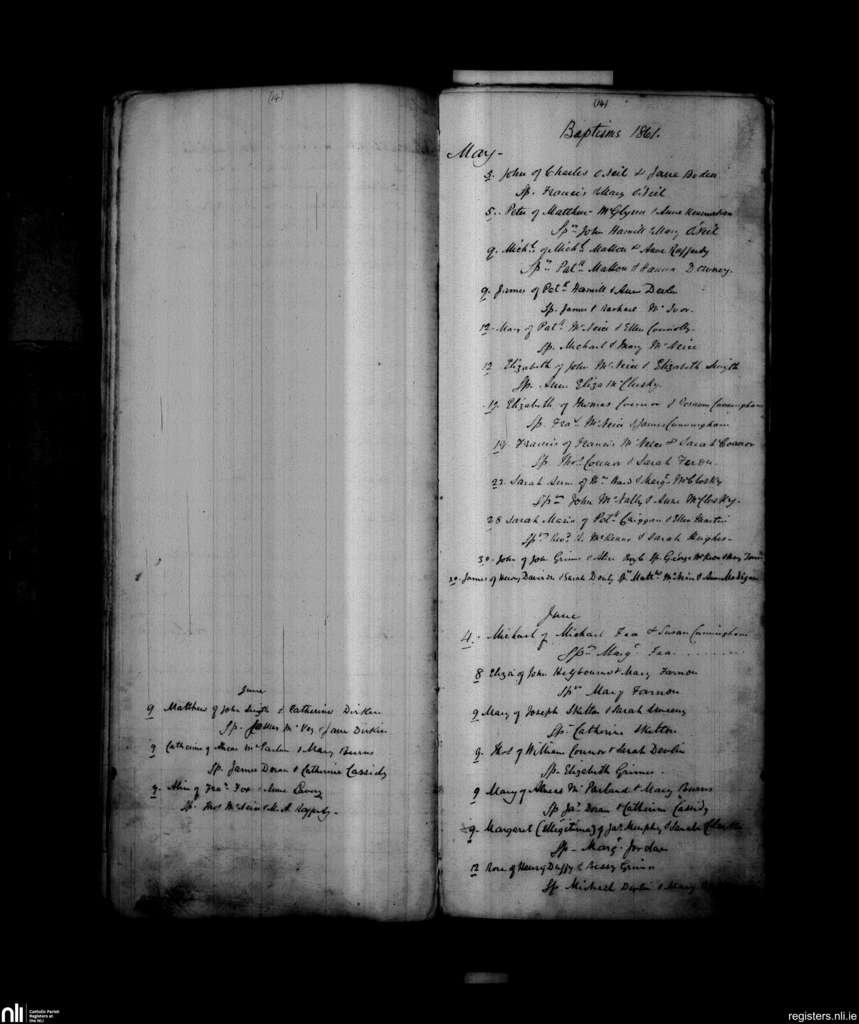 (14)
June
9 Matthew of John Smyth & Catherine Dirken
Sp. James McVey & Jane Dirken
9 Catherine of McParlan & Mary Burns
Sp. James Doran & Catherine Cassidy
9. of Fras. Fox & Anne
Sp. Thos McNeice & M. A. Rafferty.
(14)
Baptisms 1861.
May-
3. John of Charles O'Neil & Jane Boden
Sp. Francis & Mary O'Neil
5. Peter of Matthew McGlynn & Anne
Sprs John Hamill & Mary O'Neil
9. Michl. of Michl. Mallon & Anne Rafferty
Sprs Patk Mallon & Downey.
9. James of Patk Hamill & Ann Devlin
Sp. James & Rachael McIvor.
12. Mary of Patk. McNeice & Ellen Connolly.
Sp. Michael & Mary McNeice
12 Elizabeth of John McNeice & Elizabeth Smyth
Sp. Anne Eliza McClusky.
19. Elizabeth of Thomas Connor & Cunningham
Sp. Fras. McNeice & James Cunningham
19. Francis of Francis McNeice & Sarah Connor
Sp. Thos. Connor & Sarah
23. Sarah Anne of Wm Ward & Margt. McClosky
Sprs John McNally & Anne McClosky.
28 Sarah Maria of Patk. & Ellen Martin
Sprs Revd. McKenna & Sarah Hughes.
30. John of John Grimes & Alice Sp. George & Mary
30. James of Henry Davison & Sarah Sprs McNeice & Anne
June
4. Michael of Michael Fea & Susan Cunningham
Sprs Margt. Fea
8 Eliza of John & Mary Farnon
Spr Mary Farnon
9 Mary of Joseph Skelton & Sarah
Spr Catherine Skelton
9. Thos of William Connor & Sarah Devlin
Sp. Elizabeth Grimes.
9 Mary of McParland & Mary Burns
Sp Jas. Doran & Catherine Cassidy
9. Margaret (Illegitimate) of Jas. Murphy & Sarah
Sp. Margt. Jordan
12 Rose of Henry Duffy & Bessy Grimes
Sp. Michael Devlin & Mary
nli
Catholic Parish
Registers at
the NLI
registers.nli.ie